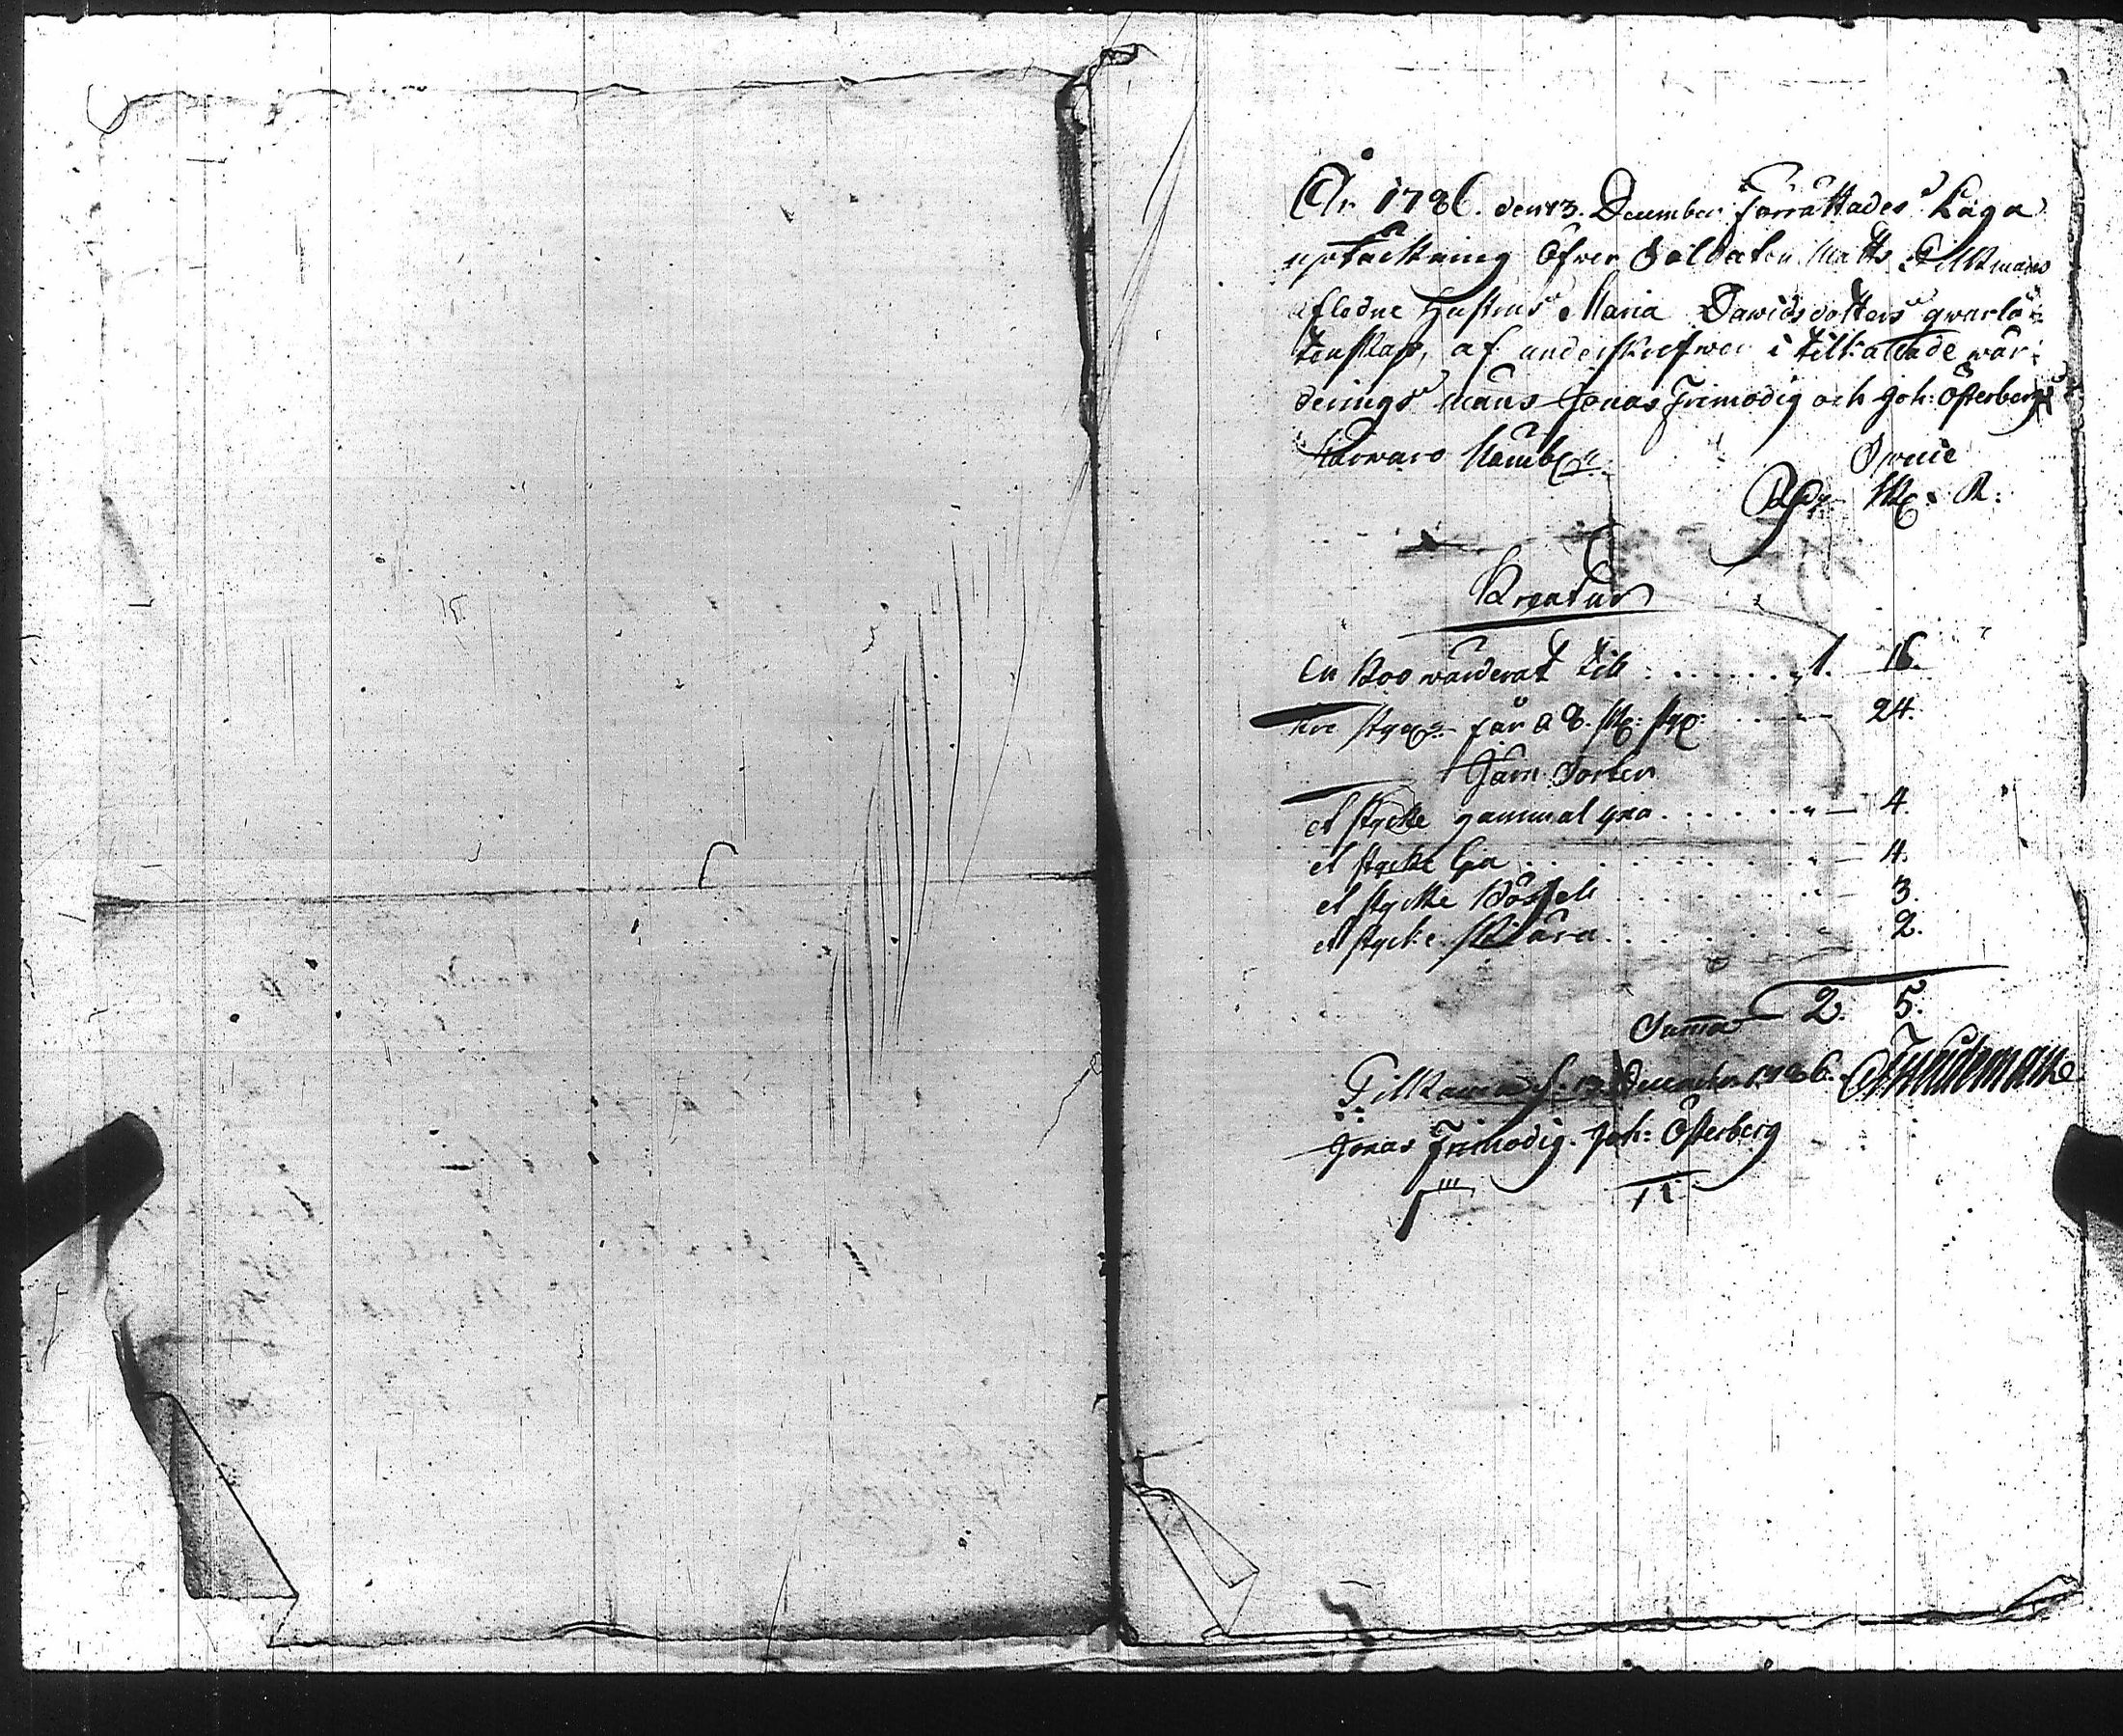 År 1786. den 13. December Förrättades Laga
upteckning Öfwer Soldaten Matts Tilkmans
afledne Hustrus Maria Dawidsdotters qwarlå-
tenskap, af underskrefwen i tilkallade wär-
derings mäns Jonas Frimodig och Joh: Österbergs
närwaro Nämbl:
Specie
Rdr Sk: R:
Kreatur
En Koo wärderat till . . . . . . . 1. 16.
tre styck: får a 8. sk: st: 24.
Järn Sorter
et stycke gammal yxa . . . . . . 4.
et stycke Lia . . . . . . . . 4.
et stycke . . . . . . . 3.
et stycke Skiära . . . . . . . 2.
Summa 2. 5.
13 December 1786.
Jonas Frimodig. Joh: Österberg